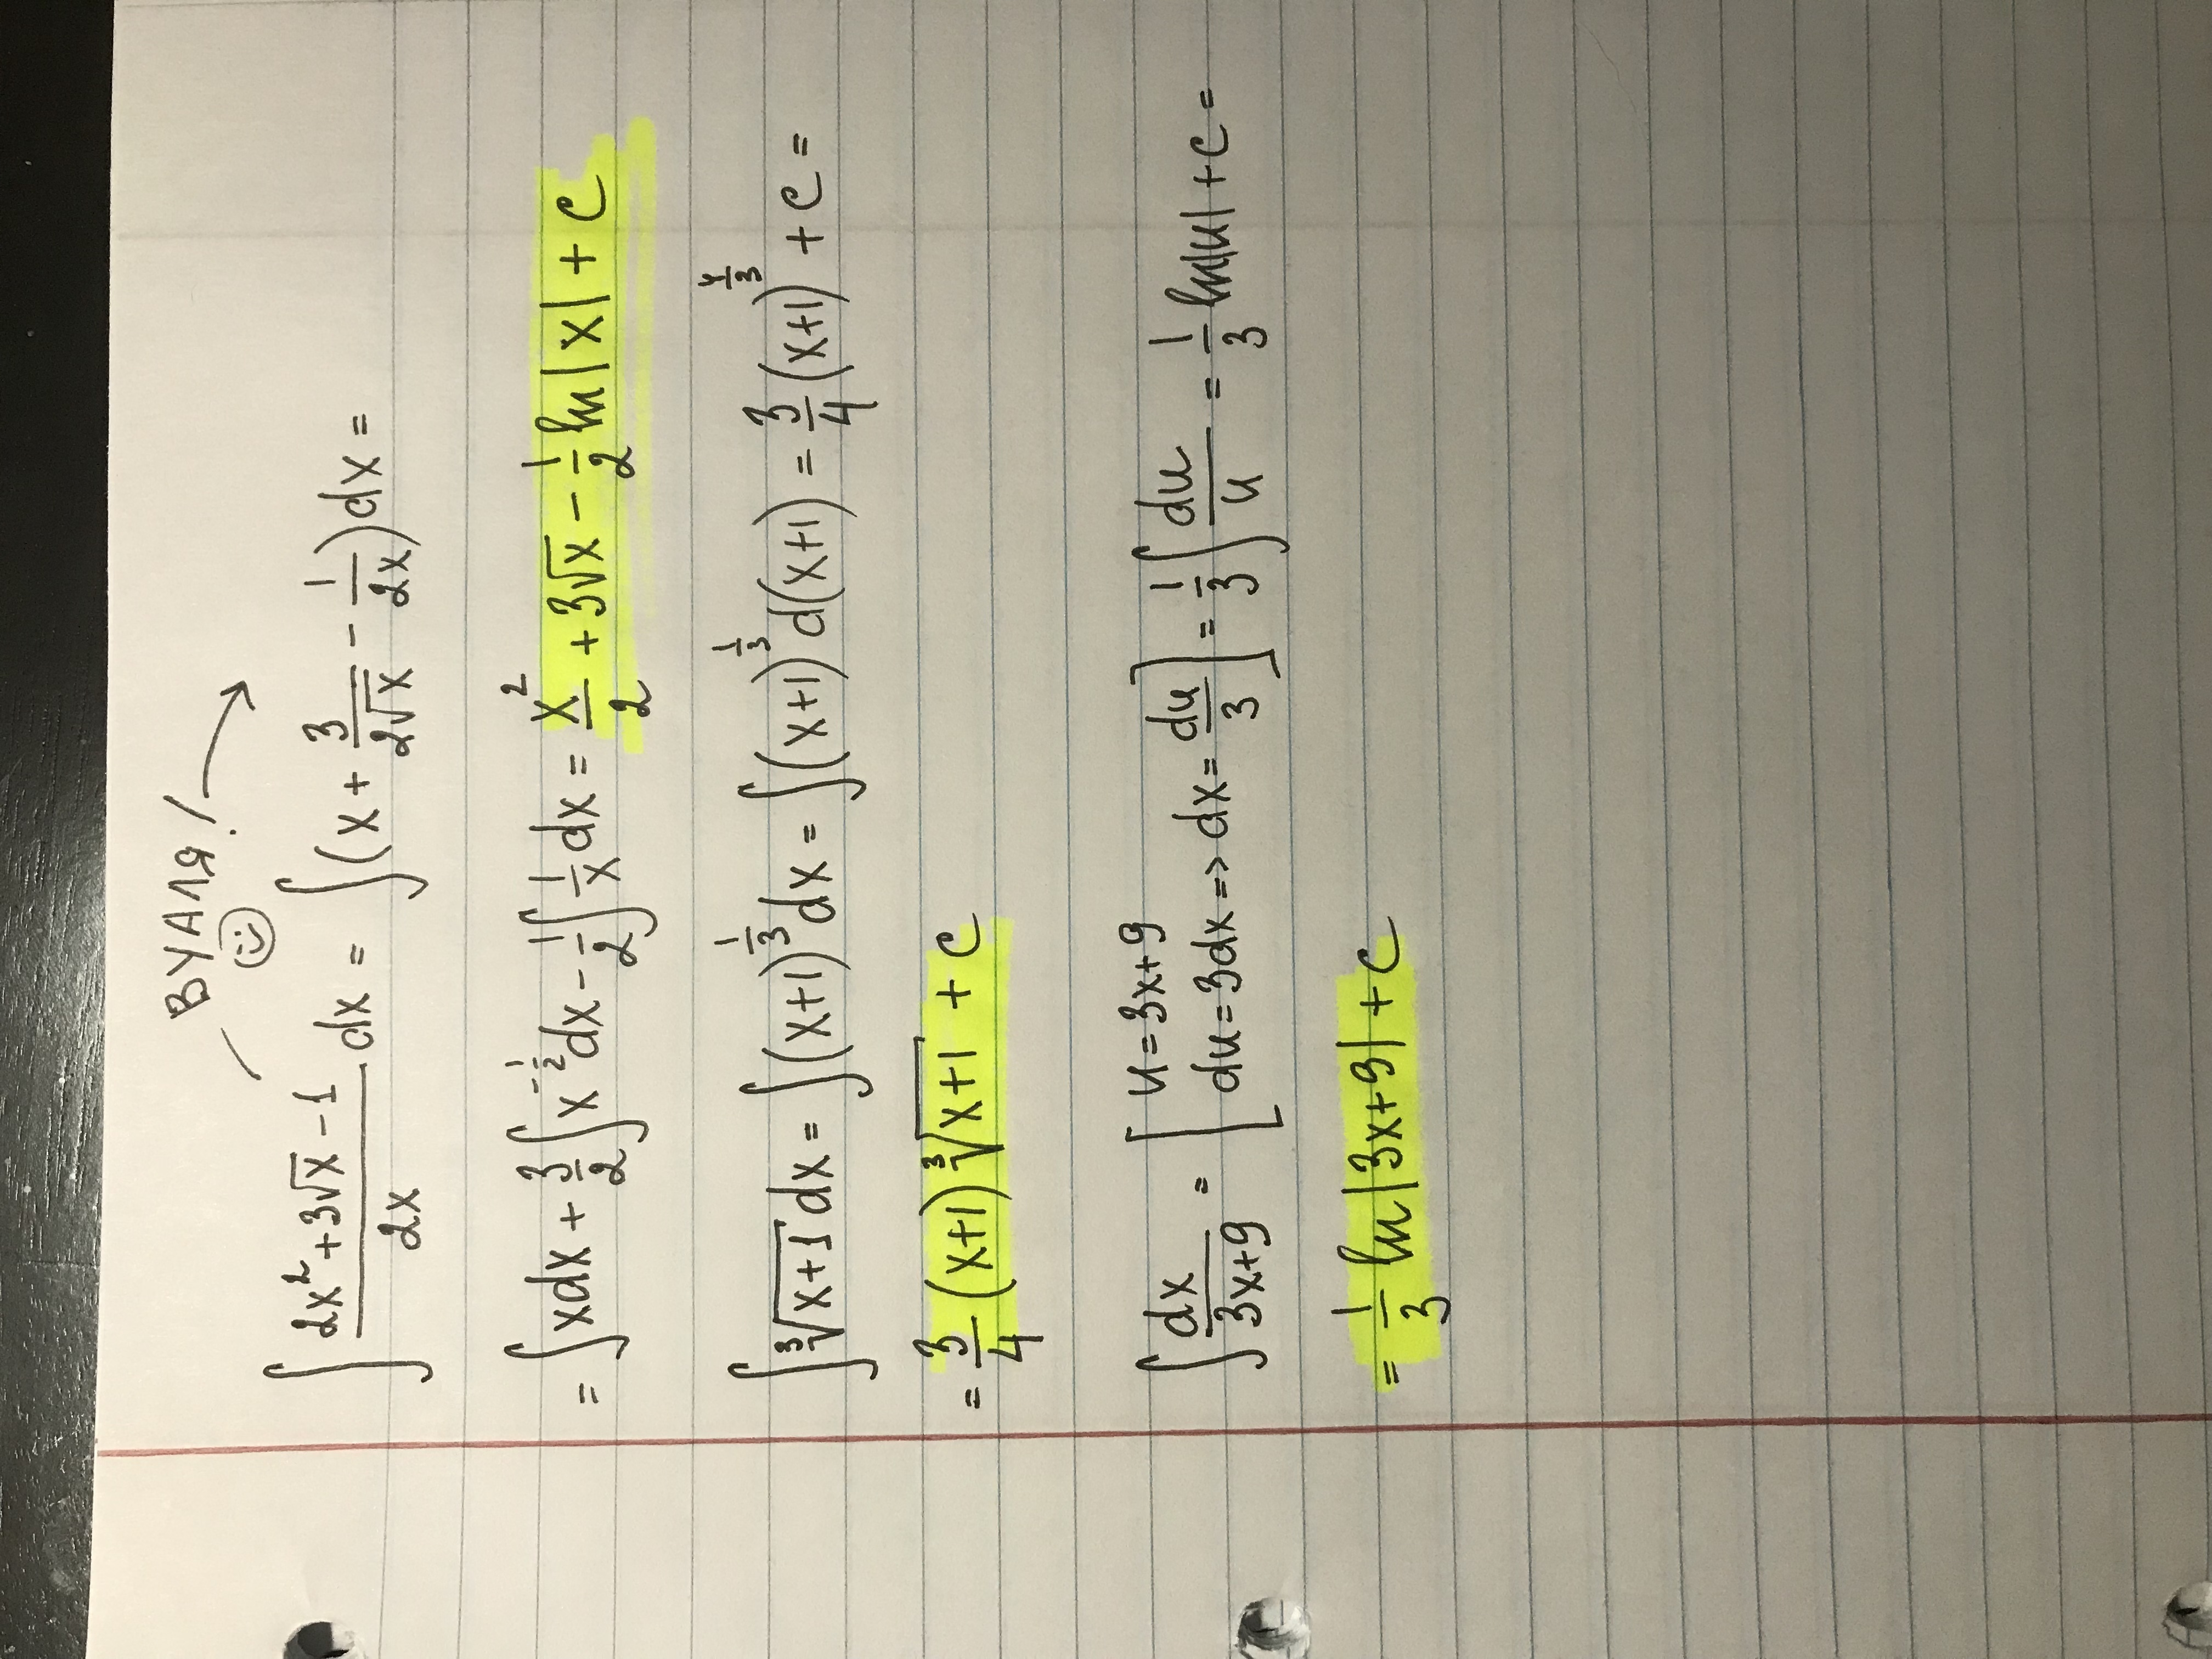 ВУАЛЯ!
∫ (2x² + 3√x − 1)/(2x) dx = ∫(x + 3/(2√x) − 1/(2x))dx =
= ∫xdx + 3/2 ∫x^(-1/2) dx − 1/2 ∫ 1/x dx = x²/2 + 3√x − 1/2 ln|x| + C
∫ ∛(x+1) dx = ∫(x+1)^(1/3) dx = ∫(x+1)^(1/3) d(x+1) = 3/4 (x+1)^(4/3) + C =
= 3/4 (x+1) ∛(x+1) + C
∫ dx/(3x+9) = [u = 3x+9 du = 3dx => dx = du/3] = 1/3 ∫ du/u = 1/3 ln|u| + C =
= 1/3 ln|3x+9| + C